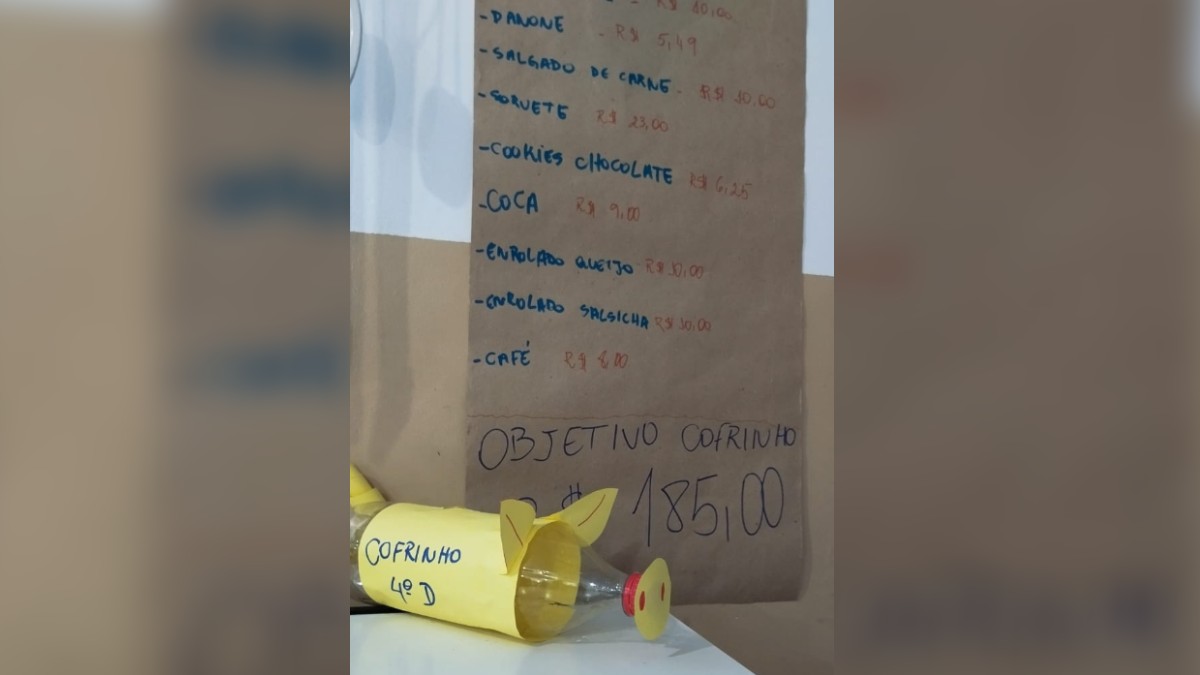 R$ 10,00
-DANONE - R$ 5,49
-SALGADO DE CARNE - R$ 10,00
-SORVETE R$ 23,00
-COOKIES CHOCOLATE R$ 6,25
-COCA R$ 9,00
-ENROLADO QUEIJO R$ 10,00
-ENROLADO SALSICHA R$ 10,00
-CAFÉ R$
OBJETIVO COFRINHO
R$ 185,00
COFRINHO
4º D